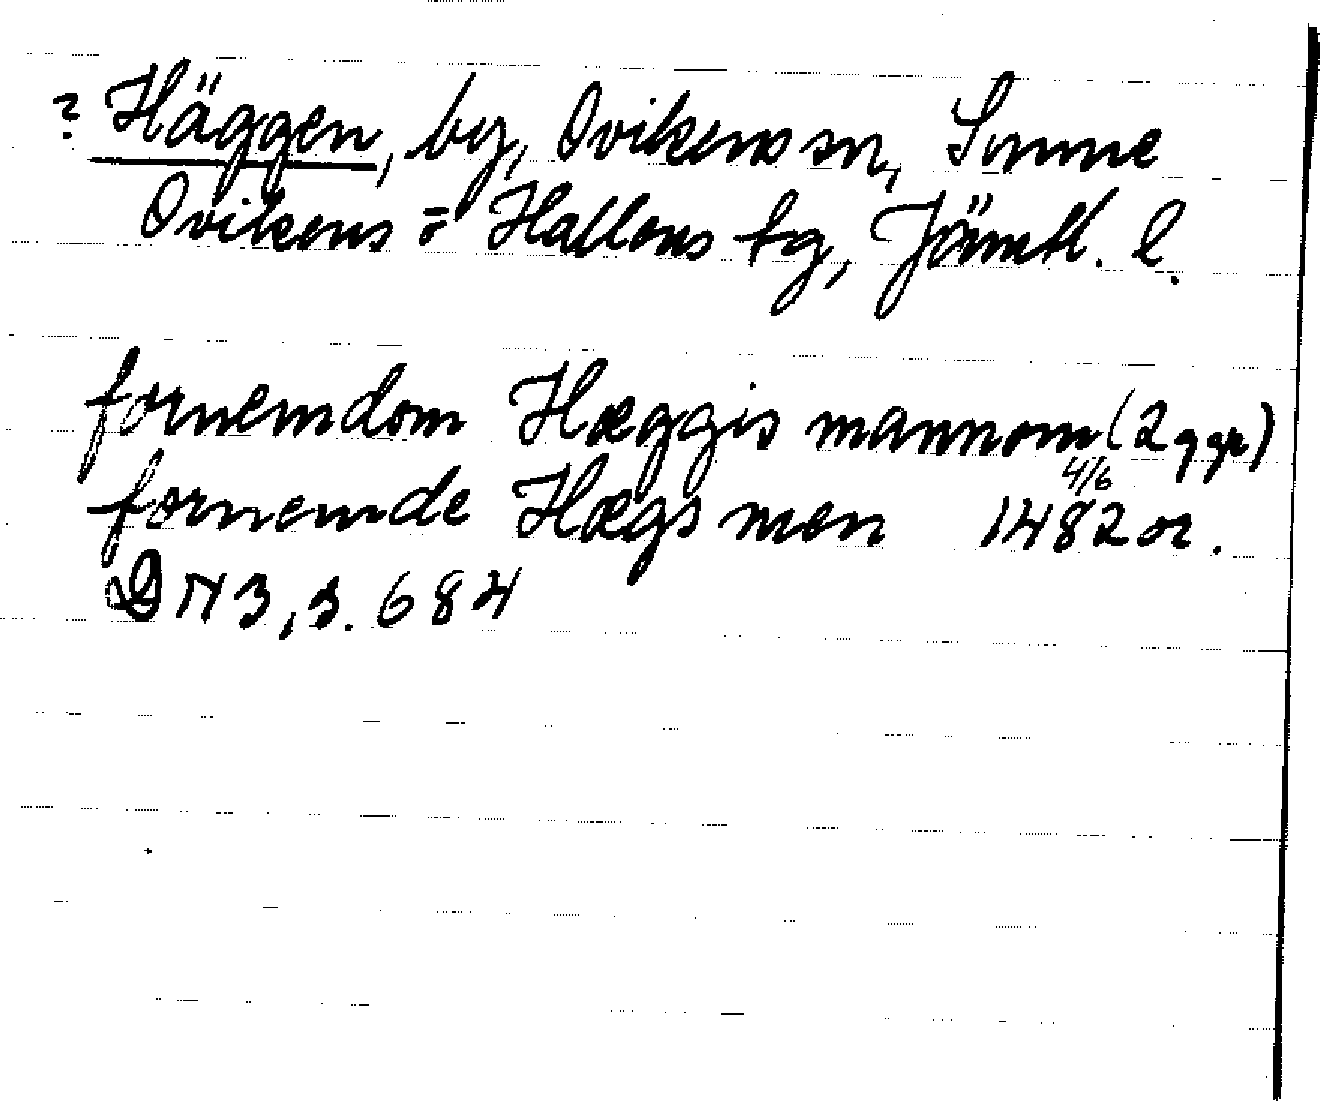 ? Häggen, by, Ovikens sn, Sunne
Ovikens o Hallens tg, Jämtl. l.
fornemdom Hæggis mannom (2 ggr)
fornemde Hægs men 4/6 1482 or.
DN 3, s. 684